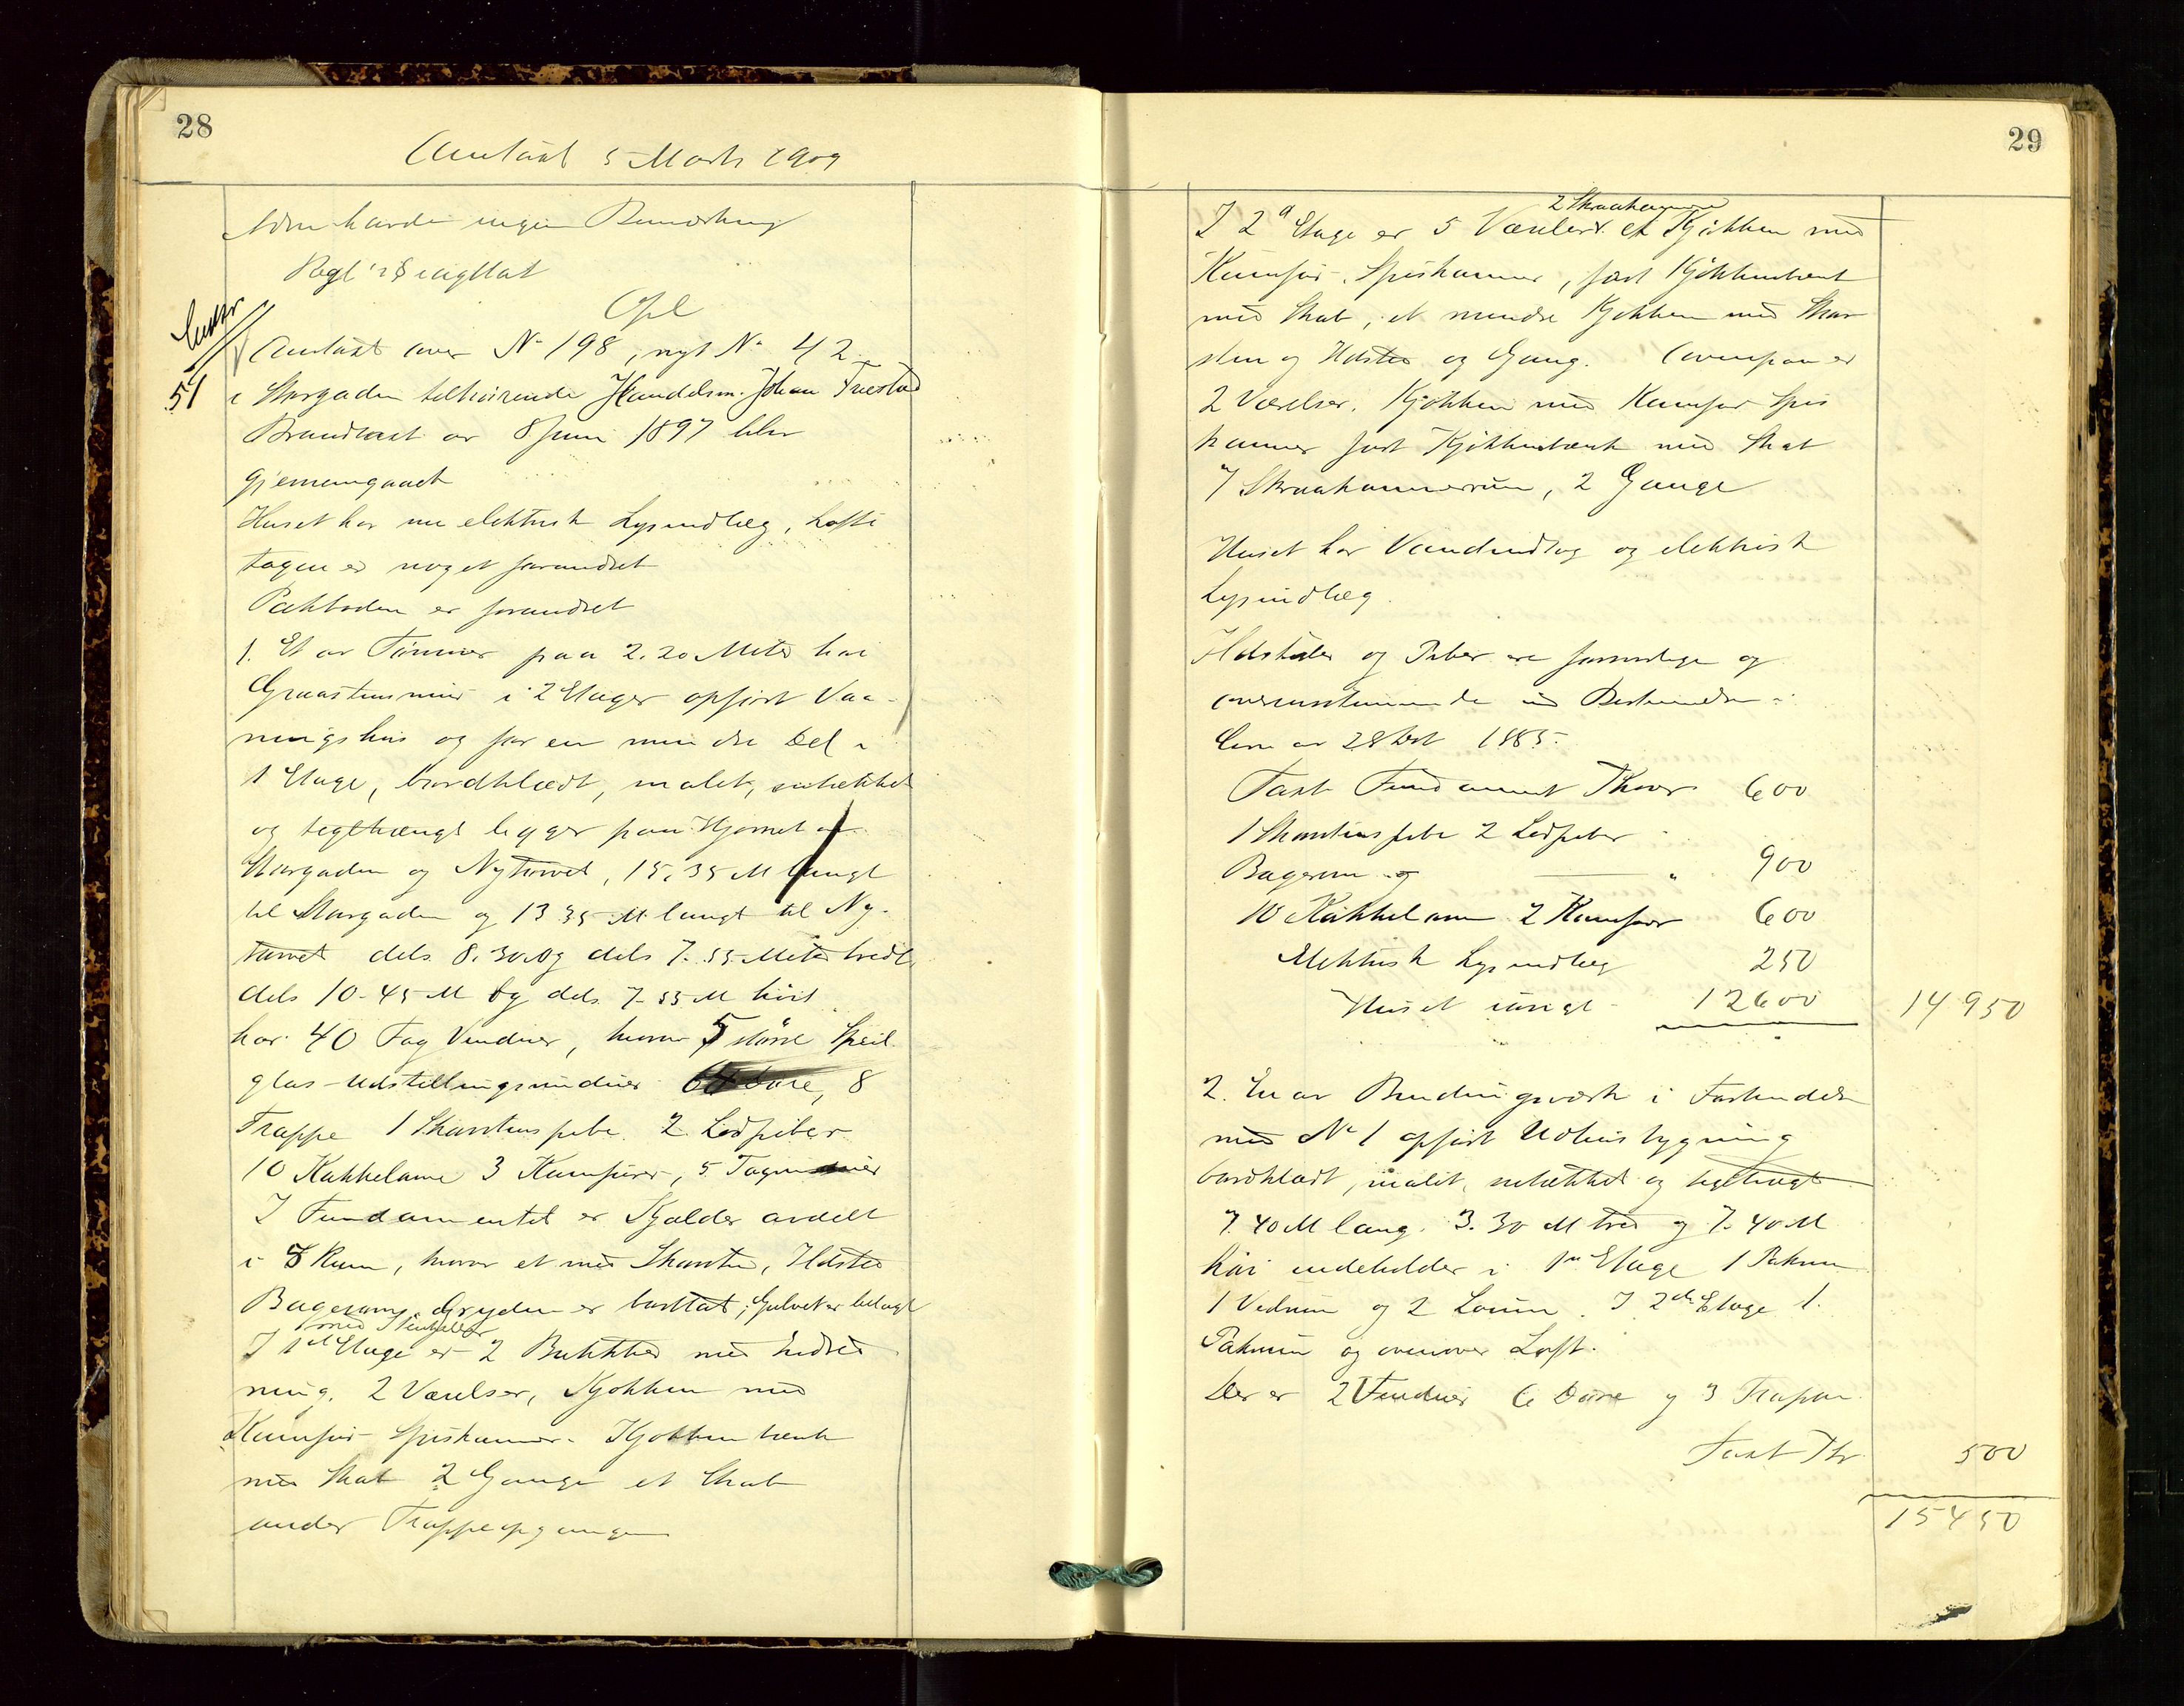 28
Omtaxt 5 Marts 1909
som havde ingen Bemærkning
Opl
51
Omtaxt over No 198, nyt No 42
i Storgaden tilhørende Handelsm. Johan Tuestad
Brandtaxt av 8 Juni 1897 blev
gjennemgaaet
Huset har nu elektrisk Lysindlæg, Lofts
tagen er noget forandret
Pakboden er forandret
1. Et av Tømmer paa 2.20 Meter høi
Graastensmur i 2 Etager opført Vaa-
ningshus og for en mindre Del i
1 Etage, bordklædt, malet,
og teglhængt ligger paa Hjørnet af
Storgaden og Nytorvet, 15.35 M langt
til Storgaden og 13 35 M langt til Ny-
torvet dels 8.30 og dels 7.55 Meter bredt
dels 10-45 M og dels 7-55 M høit
har 40 Fag Vinduer, hvorav 5 større Speil
glas-Udstillingsvinduer Døre, 8
Trappe 1 Skorstenspibe 2 Ledpiber
10 Kakkelovne 3 Komfurer, 5 Tagvinduer
I Fundamentet er Kjælder avdelt
i 8 Rum, hvorav et med Skorsten, Ildsted
Bagerovn, Gryden er borttat, Gulvet er belagt
med Stenheller
I 1ste Etage er 2 Butikker med Indred
ning, 2 Værelser, Kjøkken med
Komfur Spiskammer. Kjøkkenbænk
med Skab 2 Gange et Skab
under Trappeopgangen
29
2 Skraakammere
I 2d Etage er 5 Værelser et Kjøkken med
Komfur, Spiskammer, fast Kjøkkenbænk
med Skab, et mindre Kjøkken med Skor
sten og Ildsted og Gang. Ovenpaa er
2 Værelser, Kjøkken med Komfur Spis
kammer fast Kjøkkenbænk med Skab
7 Skraakammerrum, 2 Gange
Huset har Vandindlæg og elektrisk
Lysindlæg.
Ildsteder og Piber ere forsvarlige og
overensstemmende med Bestemmelser i
Loven av 28 Oct 1885.
Taxt Fundament Kroner 600
1 Skorstenspibe 2 Ledpiber
Bagerovn og — " 900
10 Kakkelovne 2 Komfurer 600
Elektrisk Lysindlæg 250
Huset iøvrigt - 12600 14950
2. En av Bindingsværk i Forbindelse
med No 1 opført Udhusbygning
bordklædt, malet, og teglhængt
7.40 M lang. 3.30 M bred og 7.40 M
høi indeholder i 1ste Etage 1 Pakrum
1 Vedrum og 2 Lorum. I 2den Etage 1
Pakrum og ovenover Loft.
Der er 2 Vinduer 6 Døre og 3 Trapper
Taxt Kr 500
15450